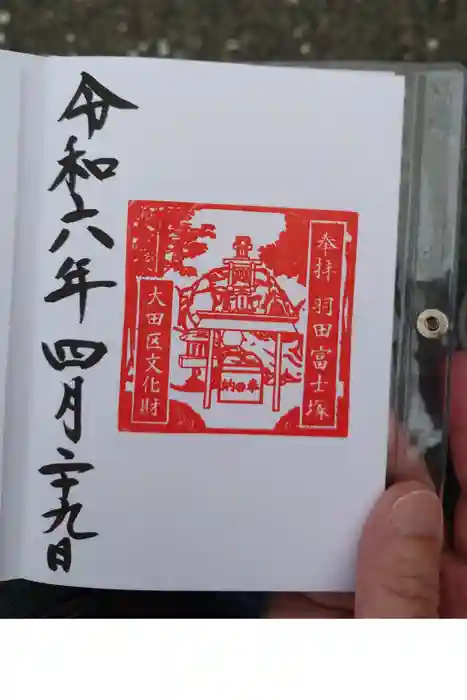 奉拝 羽田富士塚
大田区文化財
奉納
令和六年四月二十九日